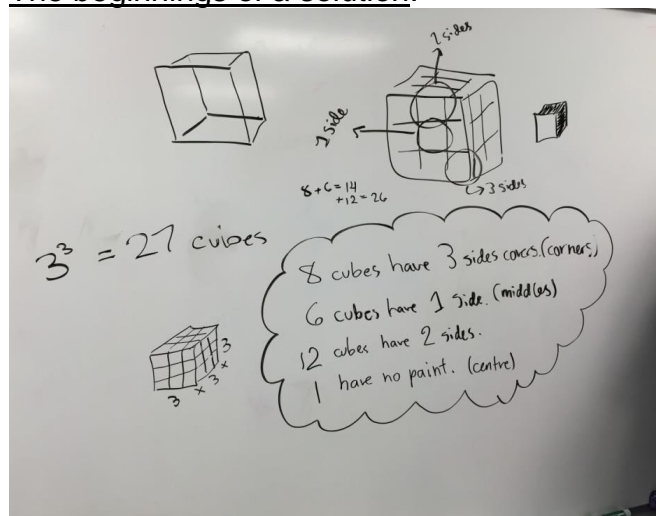 The beginnings of a solution:
2 sides
1 side
3 sides
8+6=14
+12=26
3³ = 27 cubes
8 cubes have 3 sides covers. (corners)
6 cubes have 1 side. (middles)
12 cubes have 2 sides.
1 have no paint. (centre)
3 x 3 x 3